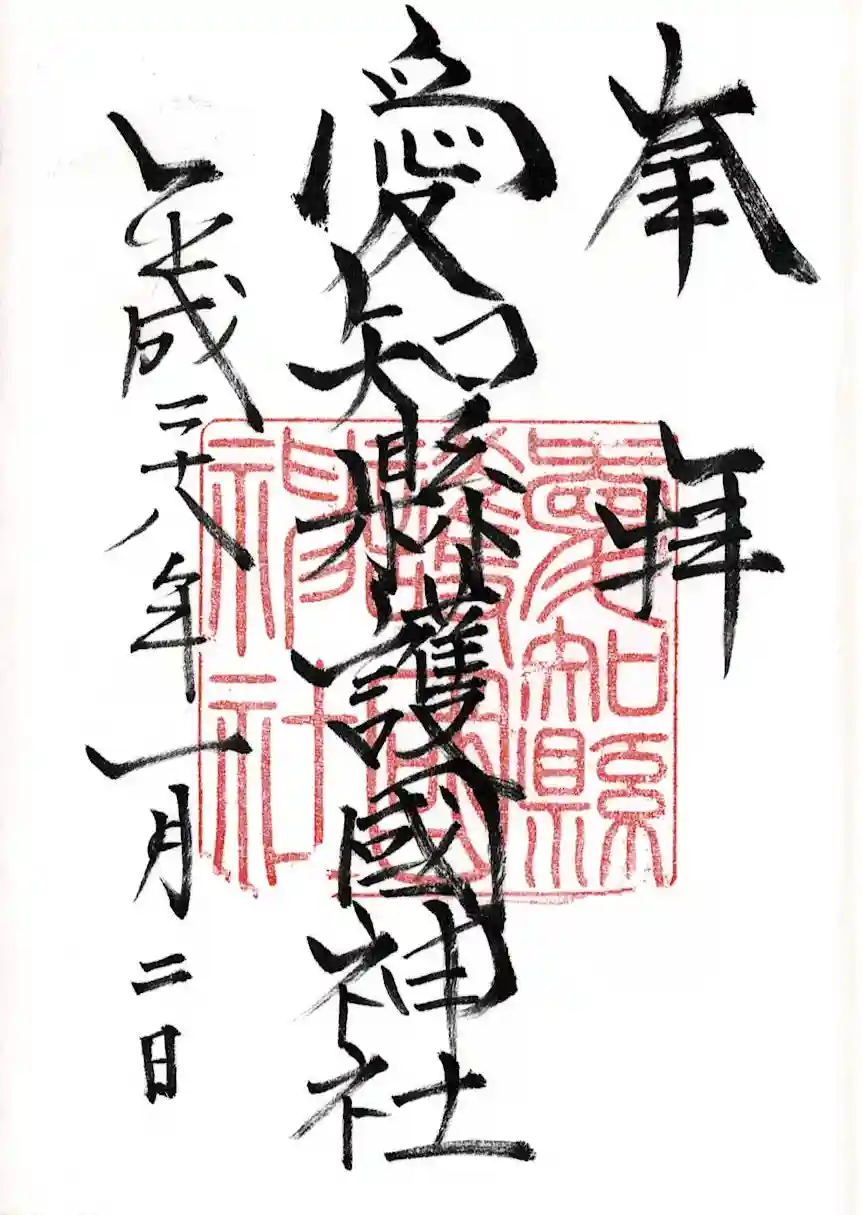 奉拝
愛知縣護國神社
平成二十八年一月二日
愛知縣
護國
神社